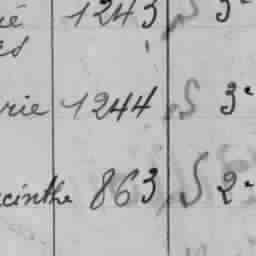 ié 1243 S 3e
es
rie 1244 S 3e
acinthe 863 S 2e